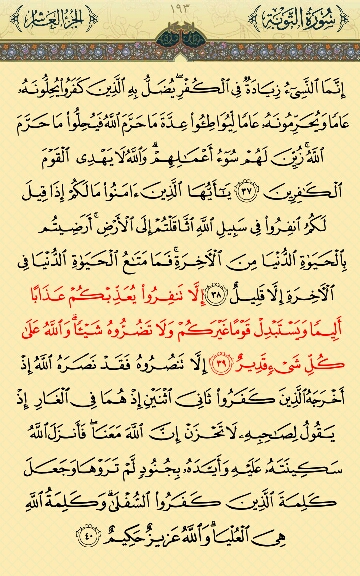 سُورَةُ التَّوۡبَةِ ١٩٣ الجُزءُ العَاشِرُ
إِنَّمَا ٱلنَّسِىٓءُ زِيَادَةٌ فِى ٱلۡكُفۡرِۖ يُضَلُّ بِهِ ٱلَّذِينَ كَفَرُواْ يُحِلُّونَهُۥ
عَامًا وَيُحَرِّمُونَهُۥ عَامًا لِّيُوَاطِـُٔواْ عِدَّةَ مَا حَرَّمَ ٱللَّهُ فَيُحِلُّواْ مَا حَرَّمَ
ٱللَّهُۚ زُيِّنَ لَهُمۡ سُوٓءُ أَعۡمَٰلِهِمۡۗ وَٱللَّهُ لَا يَهۡدِى ٱلۡقَوۡمَ
ٱلۡكَٰفِرِينَ ٣٧ يَٰٓأَيُّهَا ٱلَّذِينَ ءَامَنُواْ مَا لَكُمۡ إِذَا قِيلَ
لَكُمُ ٱنفِرُواْ فِى سَبِيلِ ٱللَّهِ ٱثَّاقَلۡتُمۡ إِلَى ٱلۡأَرۡضِۚ أَرَضِيتُم
بِٱلۡحَيَوٰةِ ٱلدُّنۡيَا مِنَ ٱلۡأٓخِرَةِۚ فَمَا مَتَٰعُ ٱلۡحَيَوٰةِ ٱلدُّنۡيَا فِى
ٱلۡأٓخِرَةِ إِلَّا قَلِيلٌ ٣٨ إِلَّا تَنفِرُواْ يُعَذِّبۡكُمۡ عَذَابًا
أَلِيمًا وَيَسۡتَبۡدِلۡ قَوۡمًا غَيۡرَكُمۡ وَلَا تَضُرُّوهُ شَيۡـًٔاۗ وَٱللَّهُ عَلَىٰ
كُلِّ شَىۡءٍ قَدِيرٌ ٣٩ إِلَّا تَنصُرُوهُ فَقَدۡ نَصَرَهُ ٱللَّهُ إِذۡ
أَخۡرَجَهُ ٱلَّذِينَ كَفَرُواْ ثَانِىَ ٱثۡنَيۡنِ إِذۡ هُمَا فِى ٱلۡغَارِ إِذۡ
يَقُولُ لِصَٰحِبِهِۦ لَا تَحۡزَنۡ إِنَّ ٱللَّهَ مَعَنَاۖ فَأَنزَلَ ٱللَّهُ
سَكِينَتَهُۥ عَلَيۡهِ وَأَيَّدَهُۥ بِجُنُودٍ لَّمۡ تَرَوۡهَا وَجَعَلَ
كَلِمَةَ ٱلَّذِينَ كَفَرُواْ ٱلسُّفۡلَىٰۗ وَكَلِمَةُ ٱللَّهِ
هِىَ ٱلۡعُلۡيَاۗ وَٱللَّهُ عَزِيزٌ حَكِيمٌ ٤٠